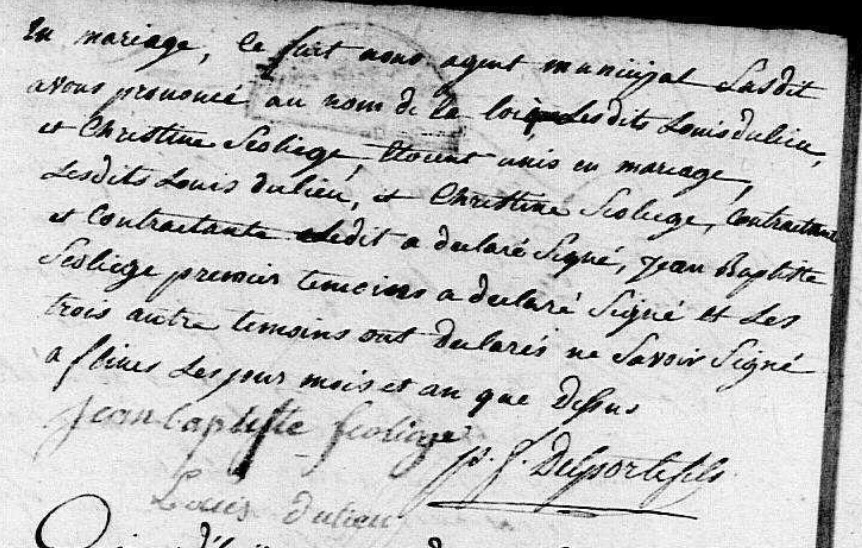 En mariage, Ce fait nous agent municipal Susdit
avons prononcé au nom de la loi Lesdits Louis dulieu,
et Christine Scoliege, Etoient unis en mariage,
Lesdits Louis dulieu, et Christine Scoliege, Contractant
et Contractante Ledit a declaré Signé, Jean Baptiste
Scoliege premier temoins a declaré Signé et Les
trois autre temoins ont declarés ne Savoir Signé
a flines Les jour mois et an que Dessus
Jean baptiste scoliege
p. J. Delporte fils
Louis dulieu